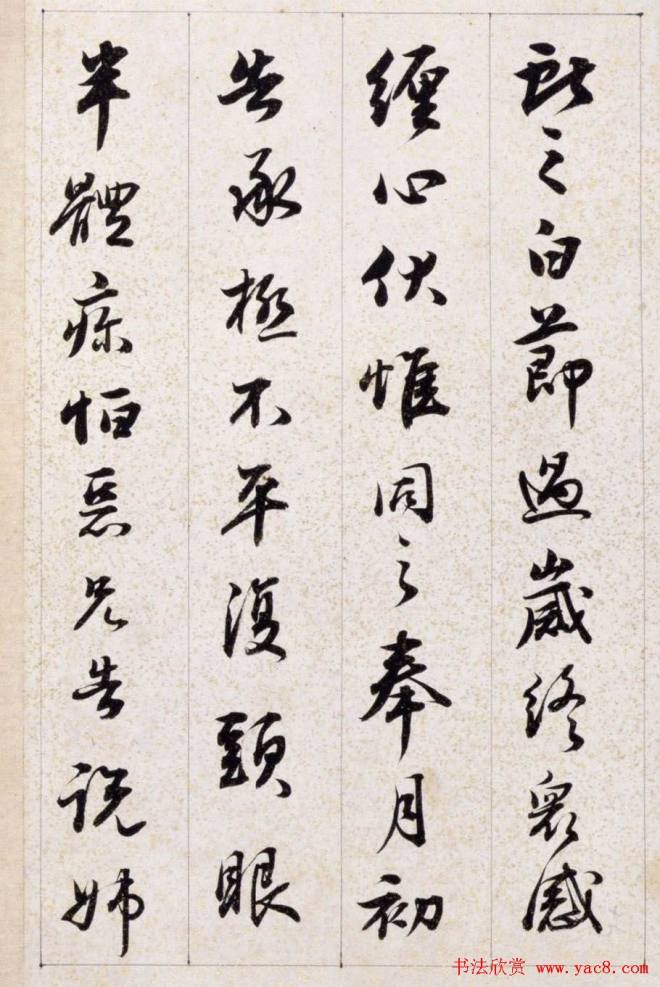 獻之白節過歲終衆感
纏心伏惟同之奉月初
告承極不平復頭眼
半體疼怕惡兄告説姊
书法欣赏 www.yac8.com